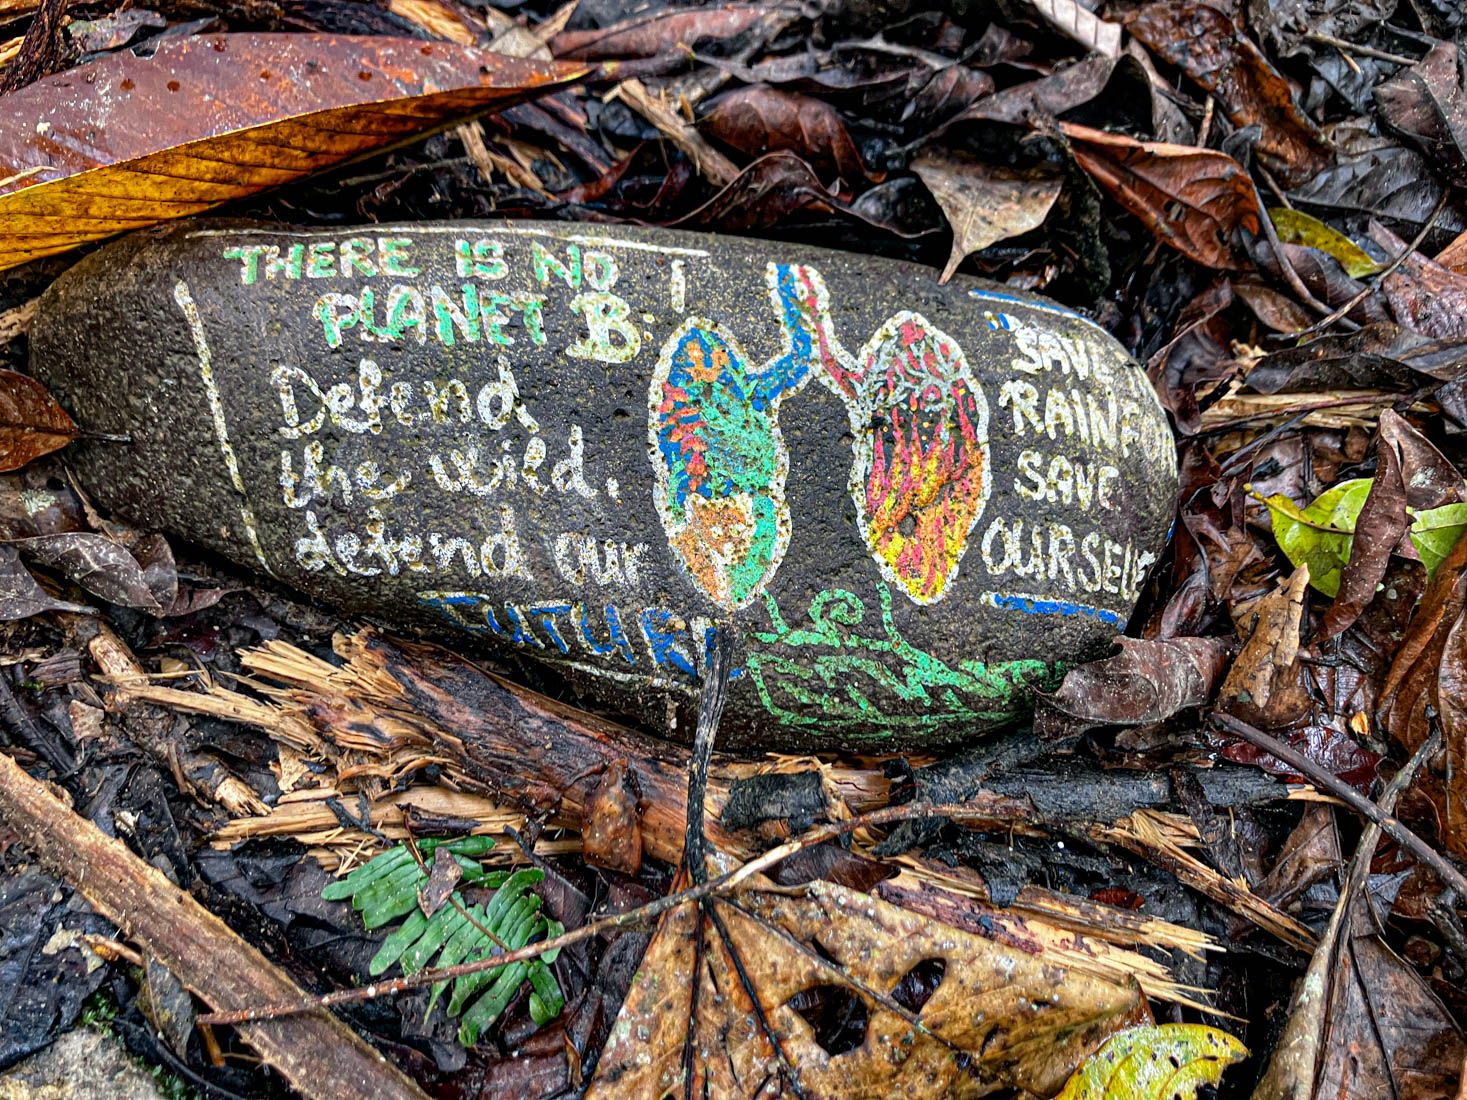 THERE IS NO
PLANET B:
Defend
the wild,
defend our
FUTURE
"SAVE
SAVE
OURSELV